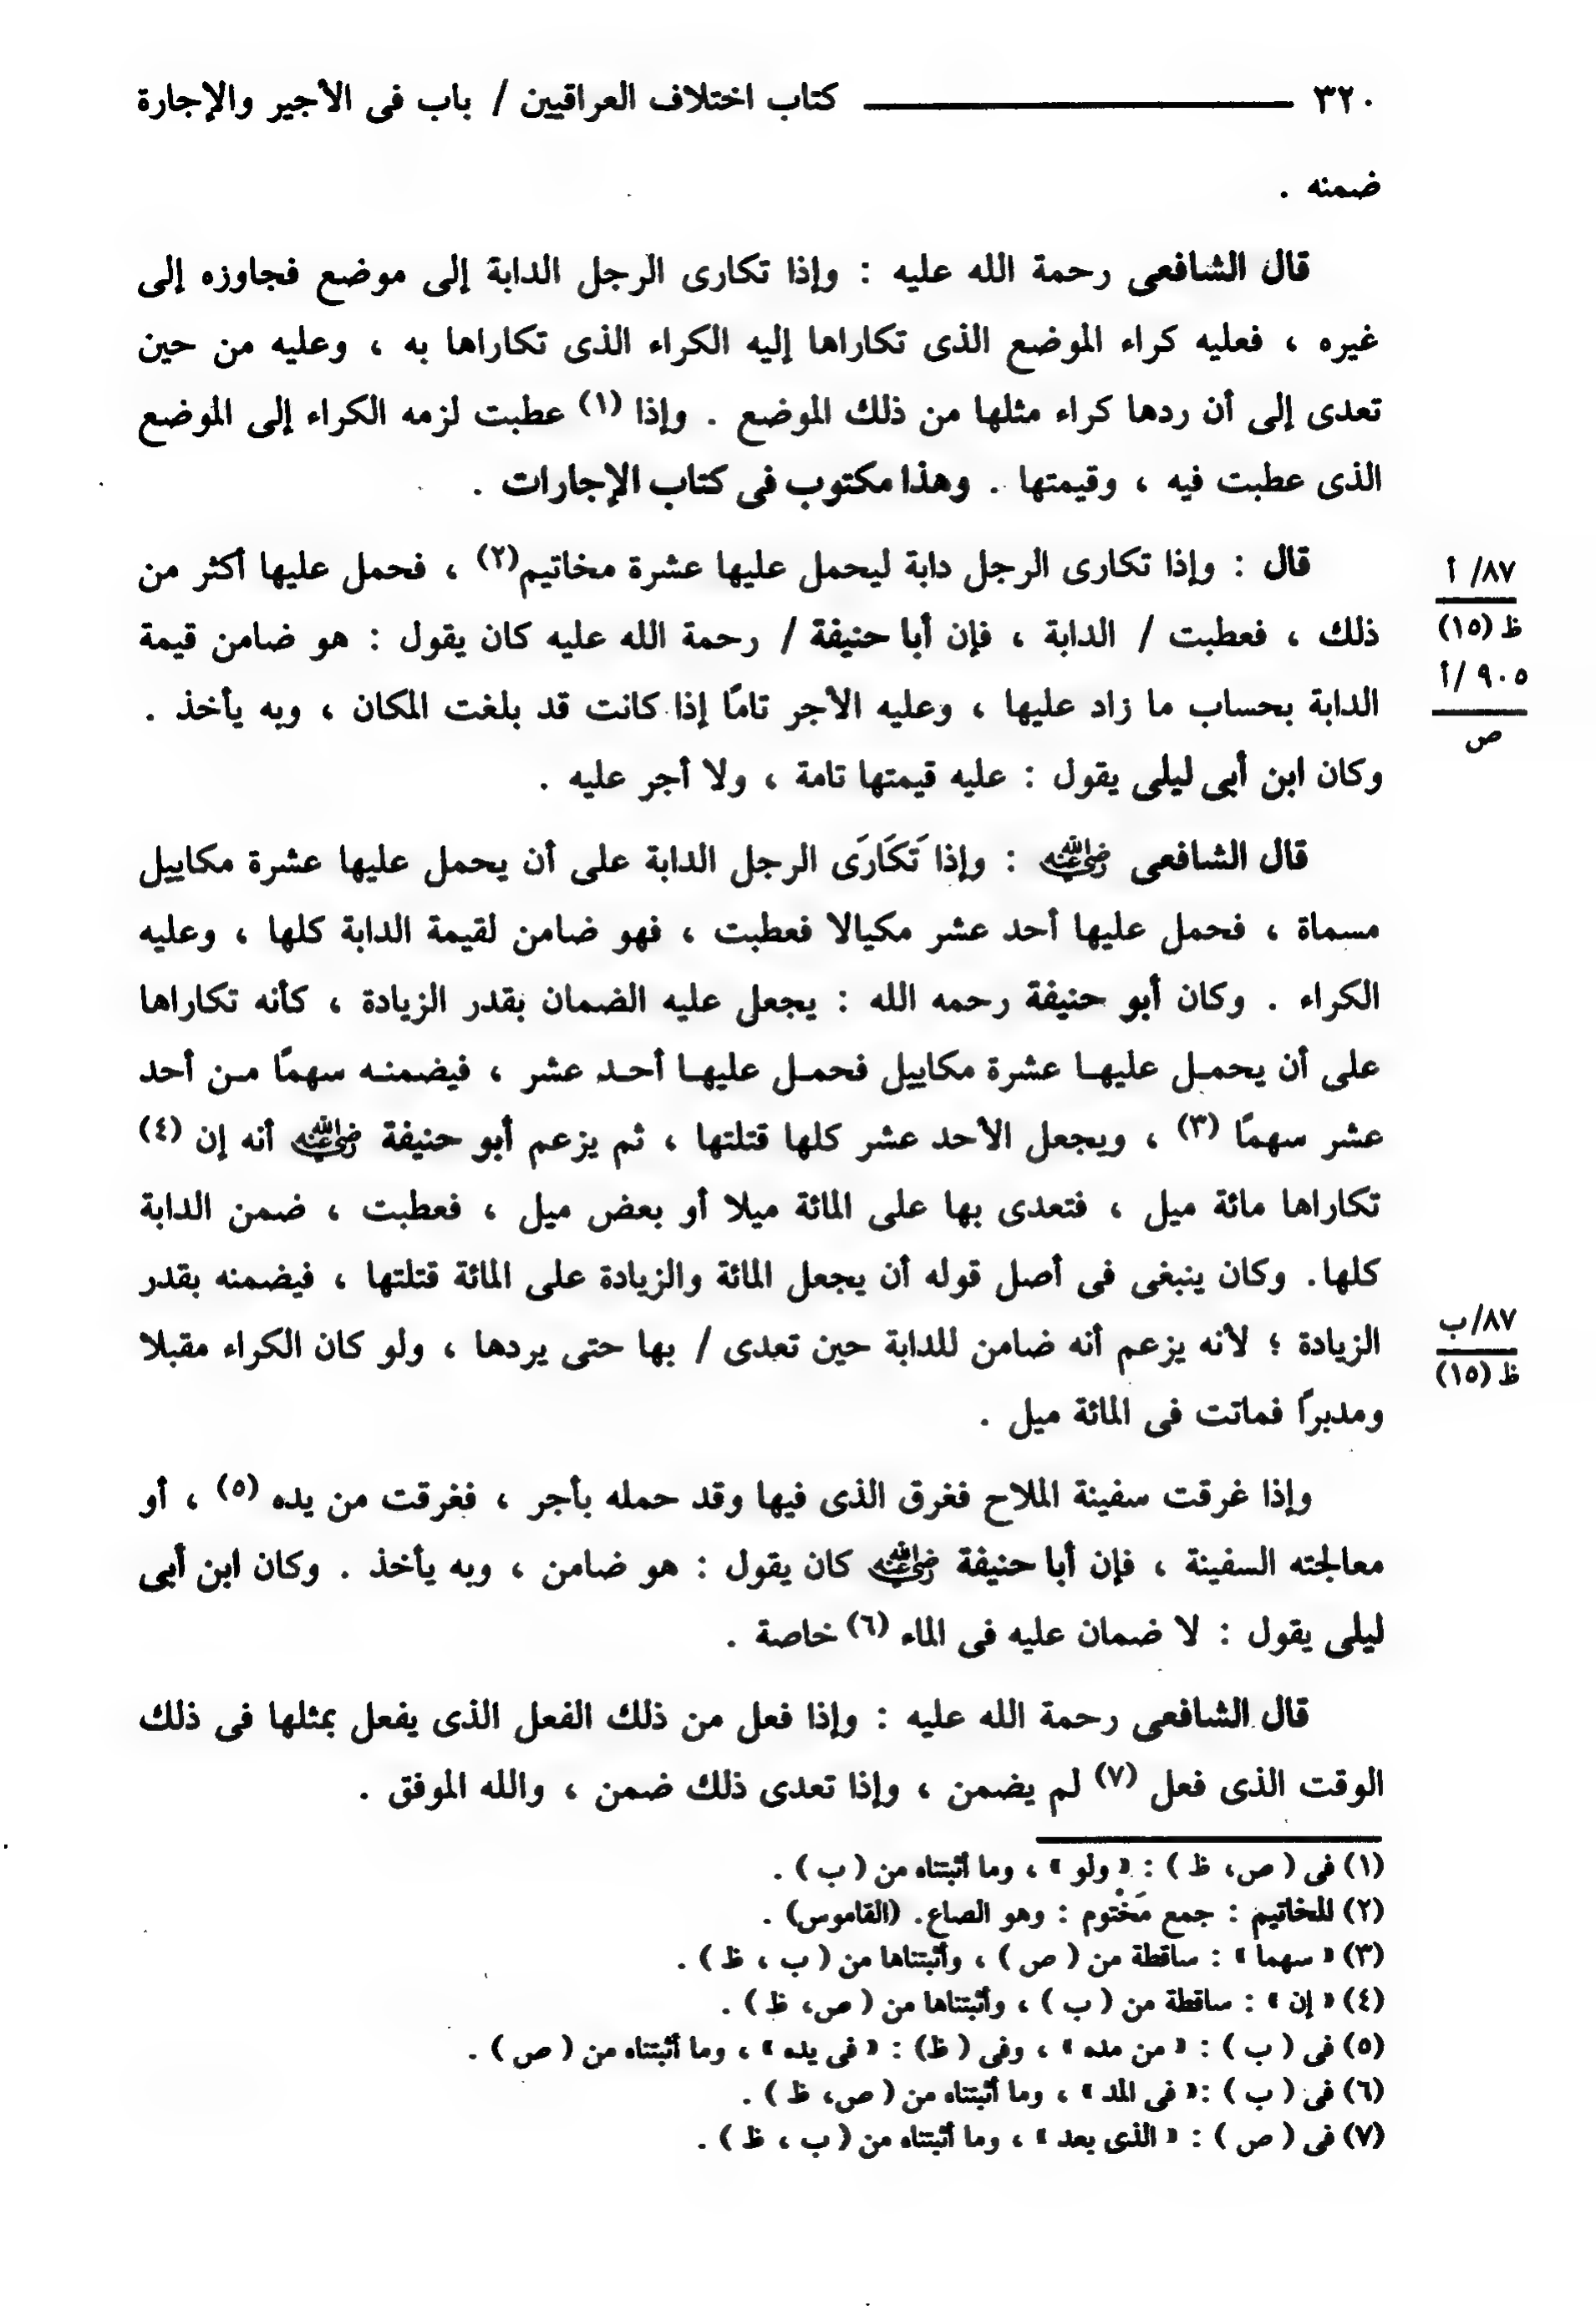 ٣٢٠ كتاب اختلاف العراقيين / باب فى الأجير والإجارة
ضمنه .
قال الشافعى رحمة الله عليه : وإذا تكارى الرجل الدابة إلى موضع فجاوزه إلى
غيره ، فعليه كراء الموضع الذى تكاراها إليه الكراء الذى تكاراها به ، وعليه من حين
تعدى إلى أن ردها كراء مثلها من ذلك الموضع . وإذا (١) عطبت لزمه الكراء إلى الموضع
الذى عطبت فيه ، وقيمتها . وهذا مكتوب فى كتاب الإجارات .
قال : وإذا تكارى الرجل دابة ليحمل عليها عشرة مخاتيم(٢) ، فحمل عليها أكثر من
٨٧/ أ
ذلك ، فعطبت / الدابة ، فإن أبا حنيفة / رحمة الله عليه كان يقول : هو ضامن قيمة
ظ (١٥)
٩٠٥/أ
الدابة بحساب ما زاد عليها ، وعليه الأجر تامًا إذا كانت قد بلغت المكان ، وبه يأخذ .
ص
وكان ابن أبى ليلى يقول : عليه قيمتها تامة ، ولا أجر عليه .
قال الشافعى رضي الله عنه : وإذا تَكَارَى الرجل الدابة على أن يحمل عليها عشرة مكاييل
مسماة ، فحمل عليها أحد عشر مكيالا فعطبت ، فهو ضامن لقيمة الدابة كلها ، وعليه
الكراء . وكان أبو حنيفة رحمه الله : يجعل عليه الضمان بقدر الزيادة ، كأنه تكاراها
على أن يحمـل عليهـا عشرة مكاييل فحمـل عليهـا أحـد عشر ، فيضمنـه سهمًا مـن أحد
عشر سهمًا (٣) ، ويجعل الأحد عشر كلها قتلتها ، ثم يزعم أبو حنيفة رضي الله عنه أنه إن (٤)
تكاراها مائة ميل ، فتعدى بها على المائة ميلا أو بعض ميل ، فعطبت ، ضمن الدابة
كلها. وكان ينبغى فى أصل قوله أن يجعل المائة والزيادة على المائة قتلتها ، فيضمنه بقدر
٨٧/ب
الزيادة ؛ لأنه يزعم أنه ضامن للدابة حين تعدى / بها حتى يردها ، ولو كان الكراء مقبلا
ظ (١٥)
ومدبرًا فماتت فى المائة ميل .
وإذا غرقت سفينة الملاح فغرق الذى فيها وقد حمله بأجر ، فغرقت من يده (٥) ، أو
معالجته السفينة ، فإن أبا حنيفة رضي الله عنه كان يقول : هو ضامن ، وبه يأخذ . وكان ابن أبى
ليلى يقول : لا ضمان عليه فى الماء (٦) خاصة .
قال الشافعى رحمة الله عليه : وإذا فعل من ذلك الفعل الذى يفعل بمثلها فى ذلك
الوقت الذى فعل (٧) لم يضمن ، وإذا تعدى ذلك ضمن ، والله الموفق .
(١) فى ( ص، ظ ) : « ولو » ، وما أثبتناه من ( ب ) .
(٢) المخاتيم : جمع مَخْتوم : وهو الصاع. (القاموس) .
(٣) « سهما » : ساقطة من ( ص ) ، وأثبتناها من ( ب ، ظ ) .
(٤) « إن » : ساقطة من ( ب ) ، وأثبتناها من ( ص، ظ ) .
(٥) فى ( ب ) : « من مده » ، وفى ( ظ ) : « فى يده » ، وما أثبتناه من ( ص ) .
(٦) فى ( ب ) :« فى المد » ، وما أثبتناه من ( ص، ظ ) .
(٧) فى ( ص ) : « الذى بعد » ، وما أثبتناه من ( ب ، ظ ) .